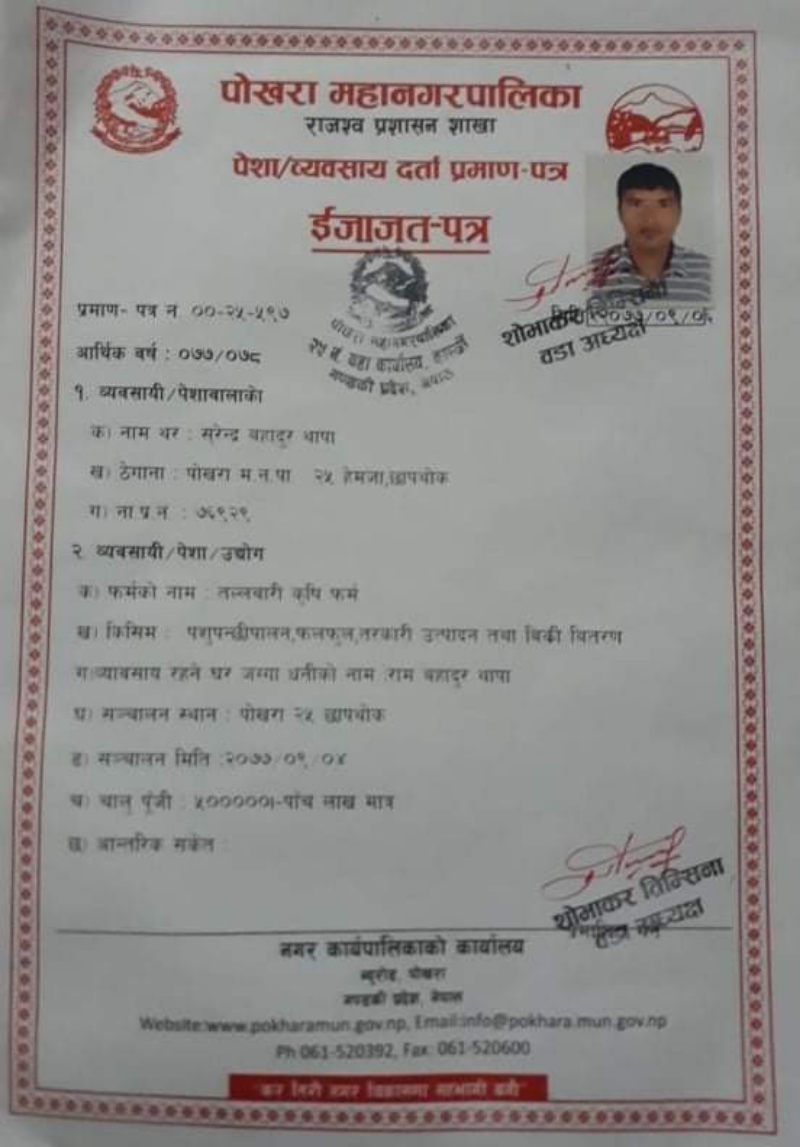 पोखरा महानगरपालिका
राजश्व प्रशासन शाखा
पेशा/व्यवसाय दर्ता प्रमाण-पत्र
ईजाजत-पत्र
प्रमाण- पत्र न ००-२५-५९७
मिति :२०७७/०९/०४
आर्थिक वर्ष : ०७७/०७८
पोखरा महानगरपालिका
२५ नं. वडा कार्यालय,
गण्डकी प्रदेश, नेपाल
शोभाकर तिम्सिना
वडा अध्यक्ष
१. व्यवसायी/पेशावालाको
क) नाम थर : सुरेन्द्र बहादुर थापा
ख) ठेगाना : पोखरा म.न.पा २५ हेमजा,छापचोक
ग) ना.प्र.न. : ७६९२९
२. व्यवसायी/पेशा/उद्योग
क) फर्मको नाम : तल्लबारी कृषि फर्म
ख) किसिम : पशुपन्छीपालन,फलफुल,तरकारी उत्पादन तथा बिक्री वितरण
ग)व्यावसाय रहने घर जग्गा धनीको नाम :राम बहादुर थापा
घ) सञ्चालन स्थान : पोखरा २५ छापचोक
ङ) सञ्चालन मिति :२०७७/०९/०४
च) चालु पुँजी : ५०००००।-पाँच लाख मात्र
छ) आन्तरिक संकेत :
शोभाकर तिम्सिना
वडा अध्यक्ष
नगर कार्यपालिकाको कार्यालय
न्यूरोड, पोखरा
गण्डकी प्रदेश, नेपाल
Website:www.pokharamun.gov.np, Email:info@pokhara.mun.gov.np
Ph 061-520392, Fax: 061-520600
"कर तिरौं नगर विकासमा सहभागी बनौं"